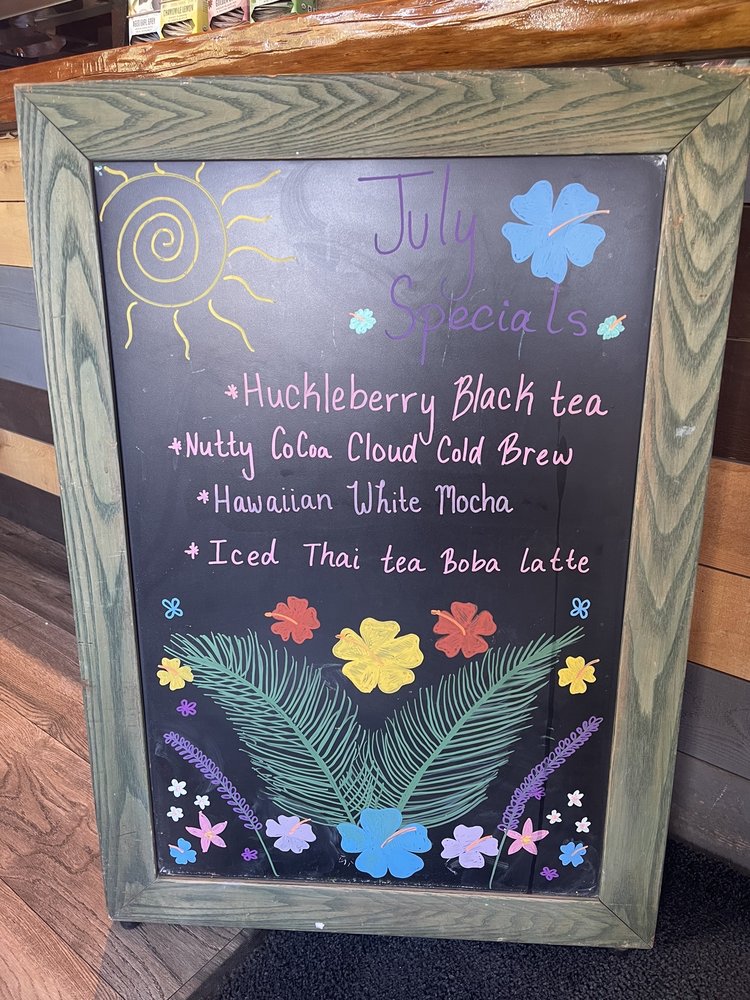 CHAMOMILE LEMON
July
Specials
*Huckleberry Black tea
*Nutty CoCoa Cloud Cold Brew
*Hawaiian White Mocha
*Iced Thai tea Boba latte